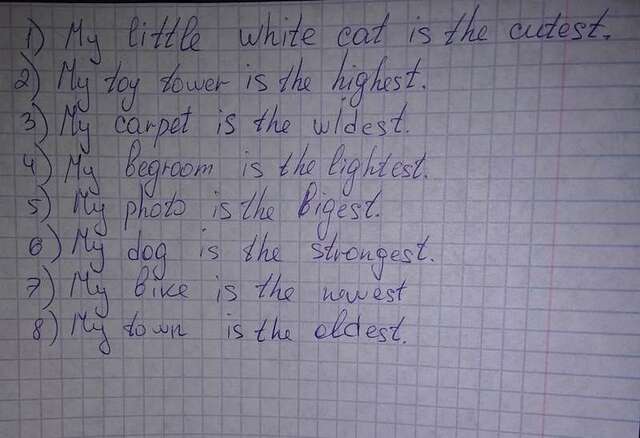 1) My little white cat is the cutest.
2) My toy tower is the highest.
3) My carpet is the wldest.
4) My begroom is the lightest.
5) My photo is the Bigest.
6) My dog is the strongest.
7) My bike is the newest
8) My town is the oldest.